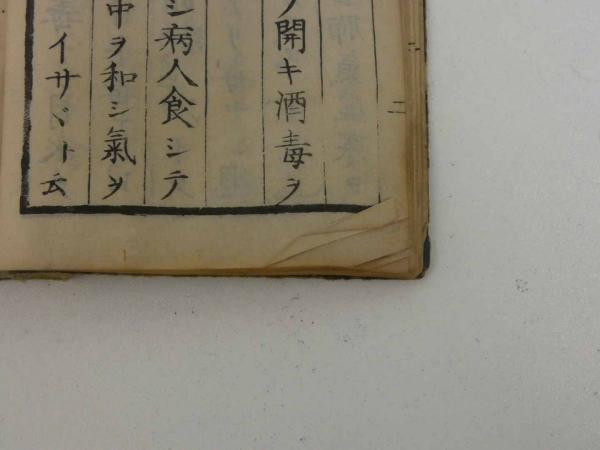 二
ノ開キ酒毒ヲ
シ病人食シテ
中ヲ和シ氣ヲ
イサヾト云